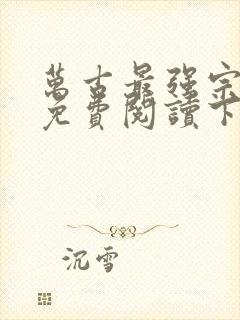 萬古最強宗
免費閱讀下
沉雪